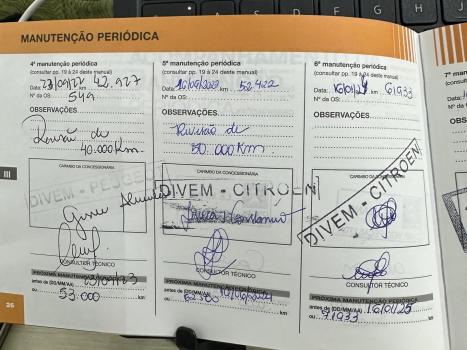 MANUTENÇÃO PERIÓDICA
4ª manutenção periódica
(consultar pp. 19 à 24 deste manual)
km 42.927
Nº da OS: 549
OBSERVAÇÕES
Revisão de
40.000 Km
CARIMBO DA CONCESSIONÁRIA
DIVEM - PEUGEOT
CONSULTOR TÉCNICO
PRÓXIMA MANUTENÇÃO PERIÓDICA
antes de (DD/MM/AA)
ou 53.000 km
5ª manutenção periódica
(consultar pp. 19 à 24 deste manual)
Data: km 52.422
Nº da OS:
OBSERVAÇÕES
Revisão de
50.000 Km
CARIMBO DA CONCESSIONÁRIA
DIVEM - CITROËN
CONSULTOR TÉCNICO
PRÓXIMA MANUTENÇÃO PERIÓDICA
antes de (DD/MM/AA)
ou km
6ª manutenção periódica
(consultar pp. 19 à 24 deste manual)
Data: 16/01/24 km 61933
Nº da OS:
OBSERVAÇÕES
CARIMBO DA CONCESSIONÁRIA
DIVEM - CITROËN
CONSULTOR TÉCNICO
PRÓXIMA MANUTENÇÃO PERIÓDICA
antes de (DD/MM/AA) 16/01/25
ou 71933 km
7ª
III
26